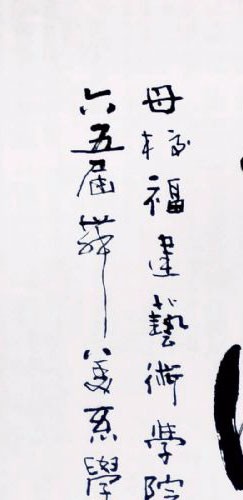 母校福建藝術学院
六五届舞美系學